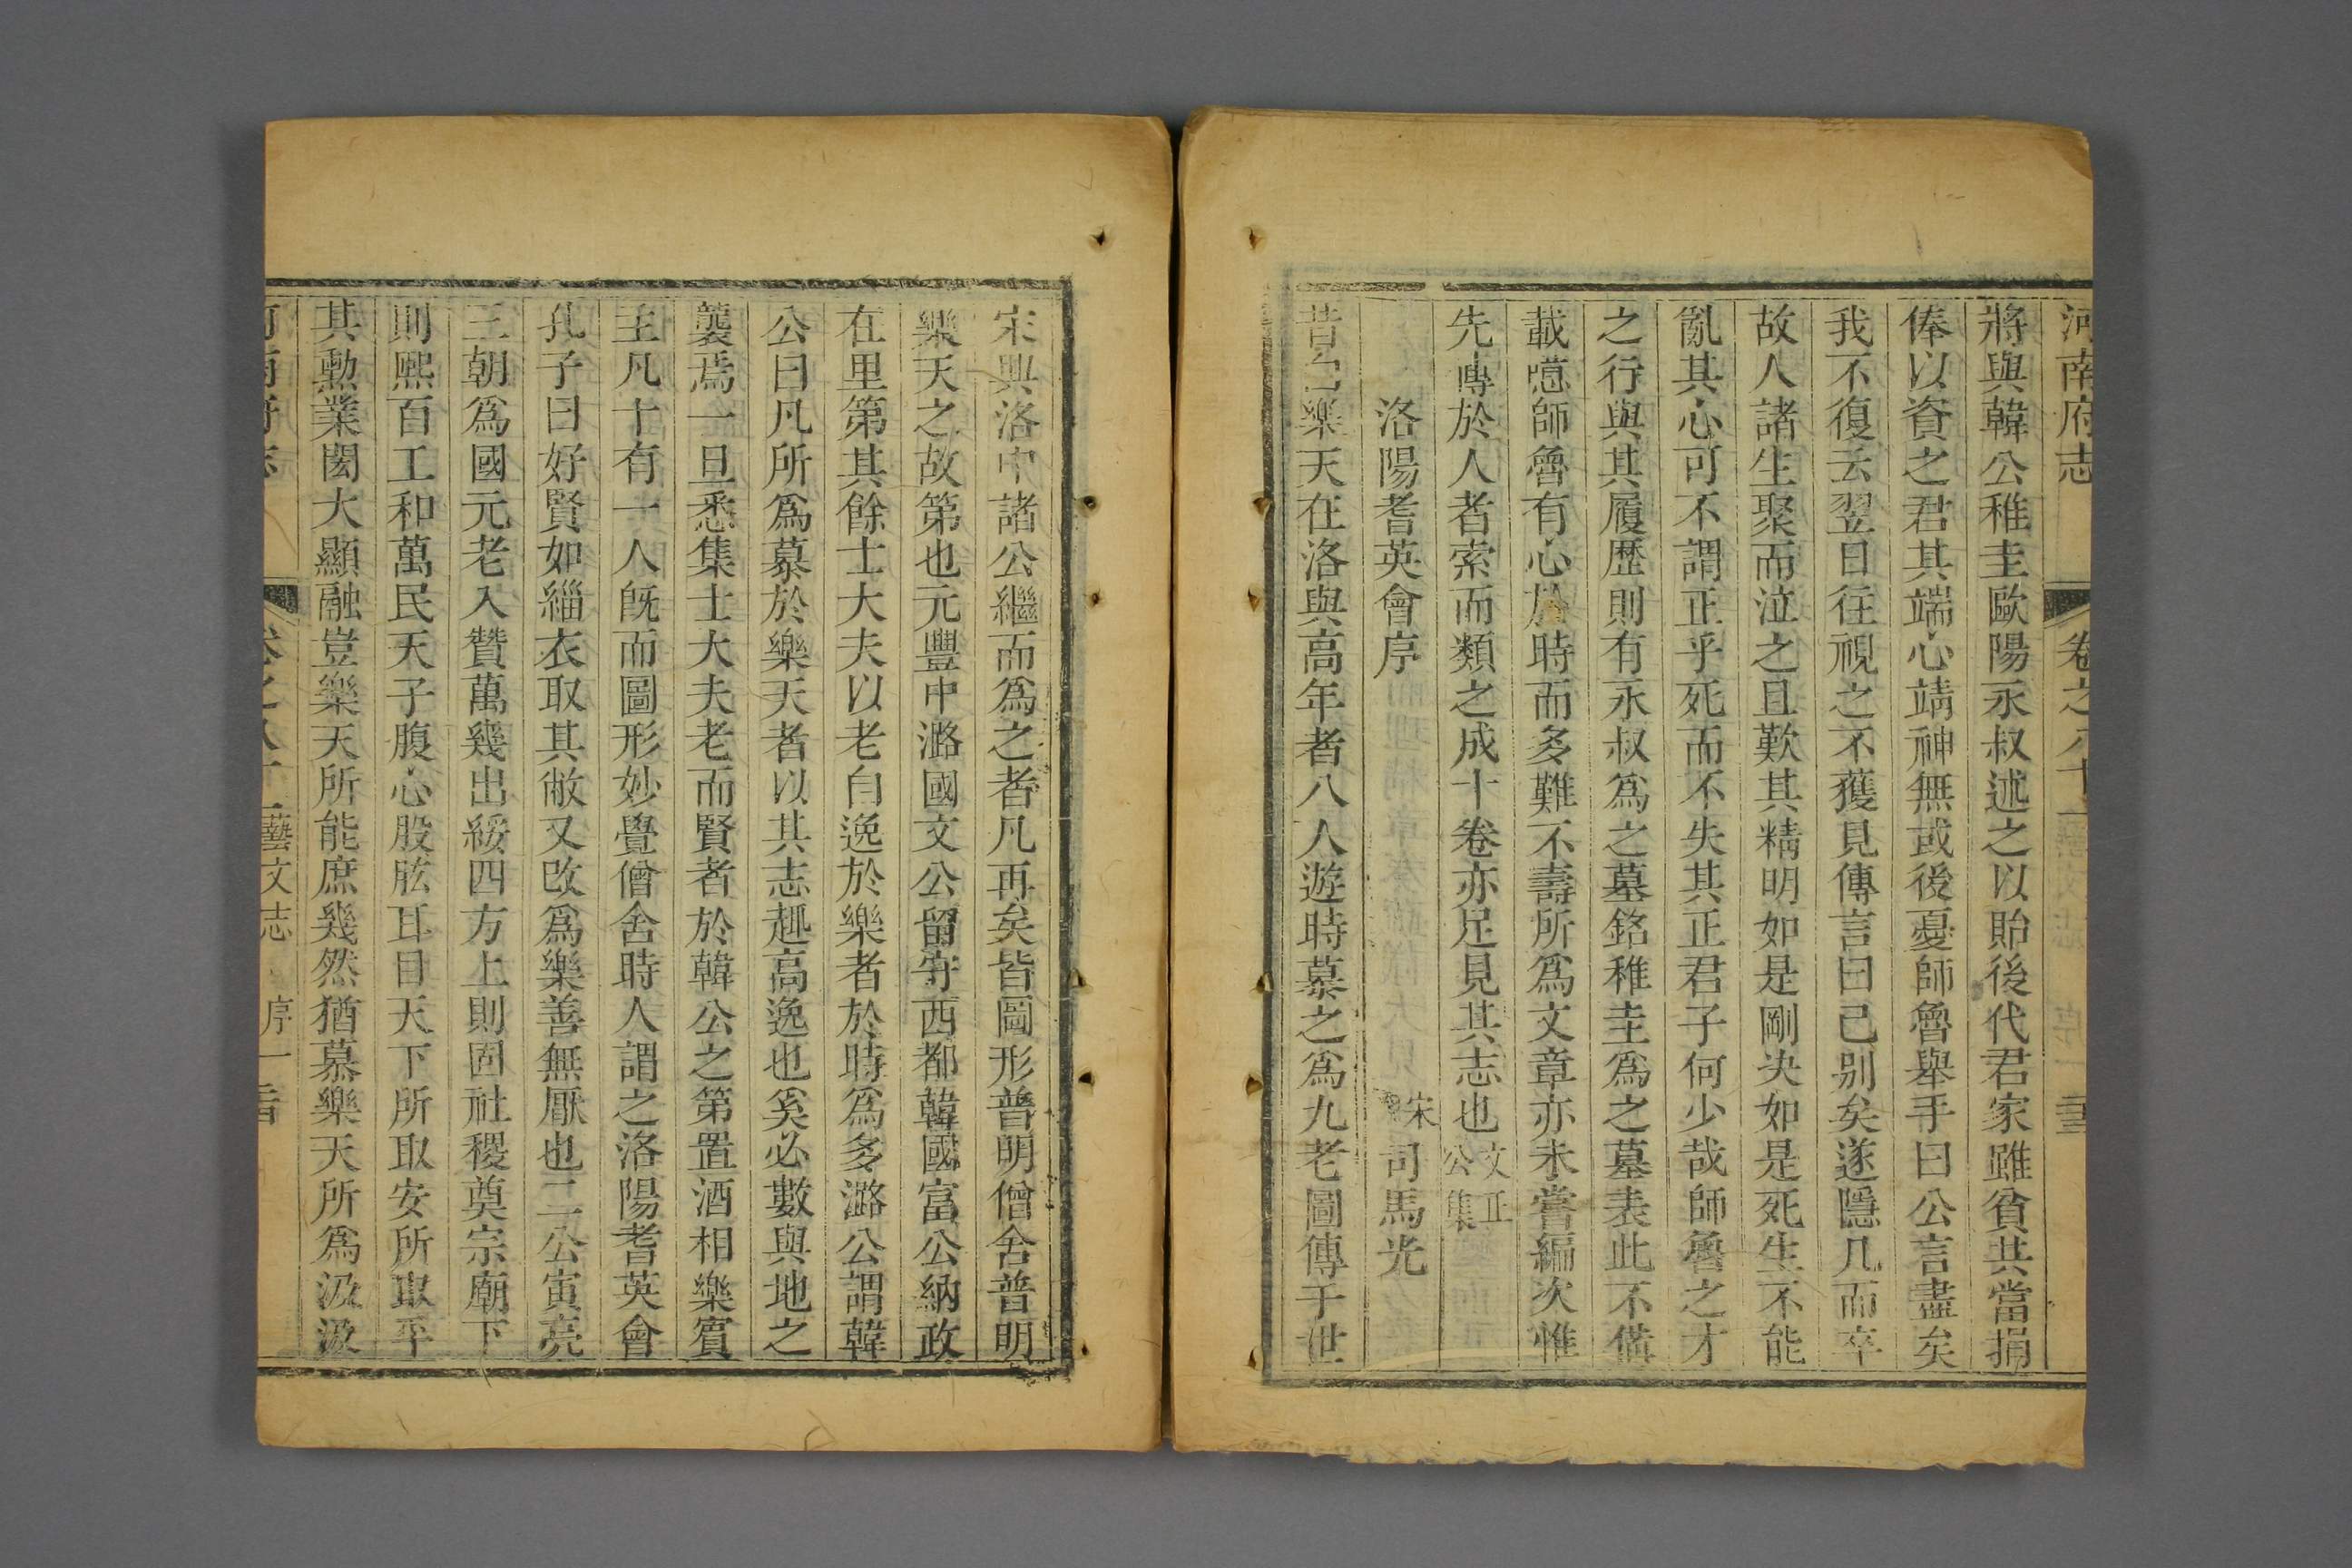 河南府志 卷之八十 藝文志 序一
將與韓公稚圭歐陽永叔述之以貽後代君家雖貧共當捐
俸以資之君其端心靖神無或後憂師魯舉手曰公言盡矣
我不復云翌日往視之不獲見傳言曰已别矣遂隱几而卒
故人諸生聚而泣之且歎其精明如是剛决如是死生不能
亂其心可不謂正乎死而不失其正君子何少哉師魯之才
之行與其履歷則有永叔為之墓銘稚圭為之墓表此不備
載噫師魯有心於時而多難不壽所為文章亦未嘗編次惟
先傳於人者索而類之成十卷亦足見其志也文正公集
洛陽耆英會序 宋司馬光
昔白樂天在洛與高年者八人遊時慕之為九老圖傳于世
宋興洛中諸公繼而為之者凡再矣皆圖形普明僧舍普明
樂天之故第也元豐中潞國文公留守西都韓國富公納政
在里第其餘士大夫以老自逸於樂者於時為多潞公謂韓
公曰凡所為慕於樂天者以其志趣高逸也奚必數與地之
襲焉一旦悉集士大夫老而賢者於韓公之第置酒相樂賓
主凡十有一人既而圖形妙覺僧舍時人謂之洛陽耆英會
孔子曰好賢如緇衣取其敝又改為樂善無厭也二公寅亮
三朝為國元老入贊萬幾出綏四方上則固社稷奠宗廟下
則熙百工和萬民天子腹心股肱耳目天下所取安所取平
其勲業閎大顯融豈樂天所能庶幾然猶慕樂天所為汲汲
河南府志 卷之八十 藝文志 序一